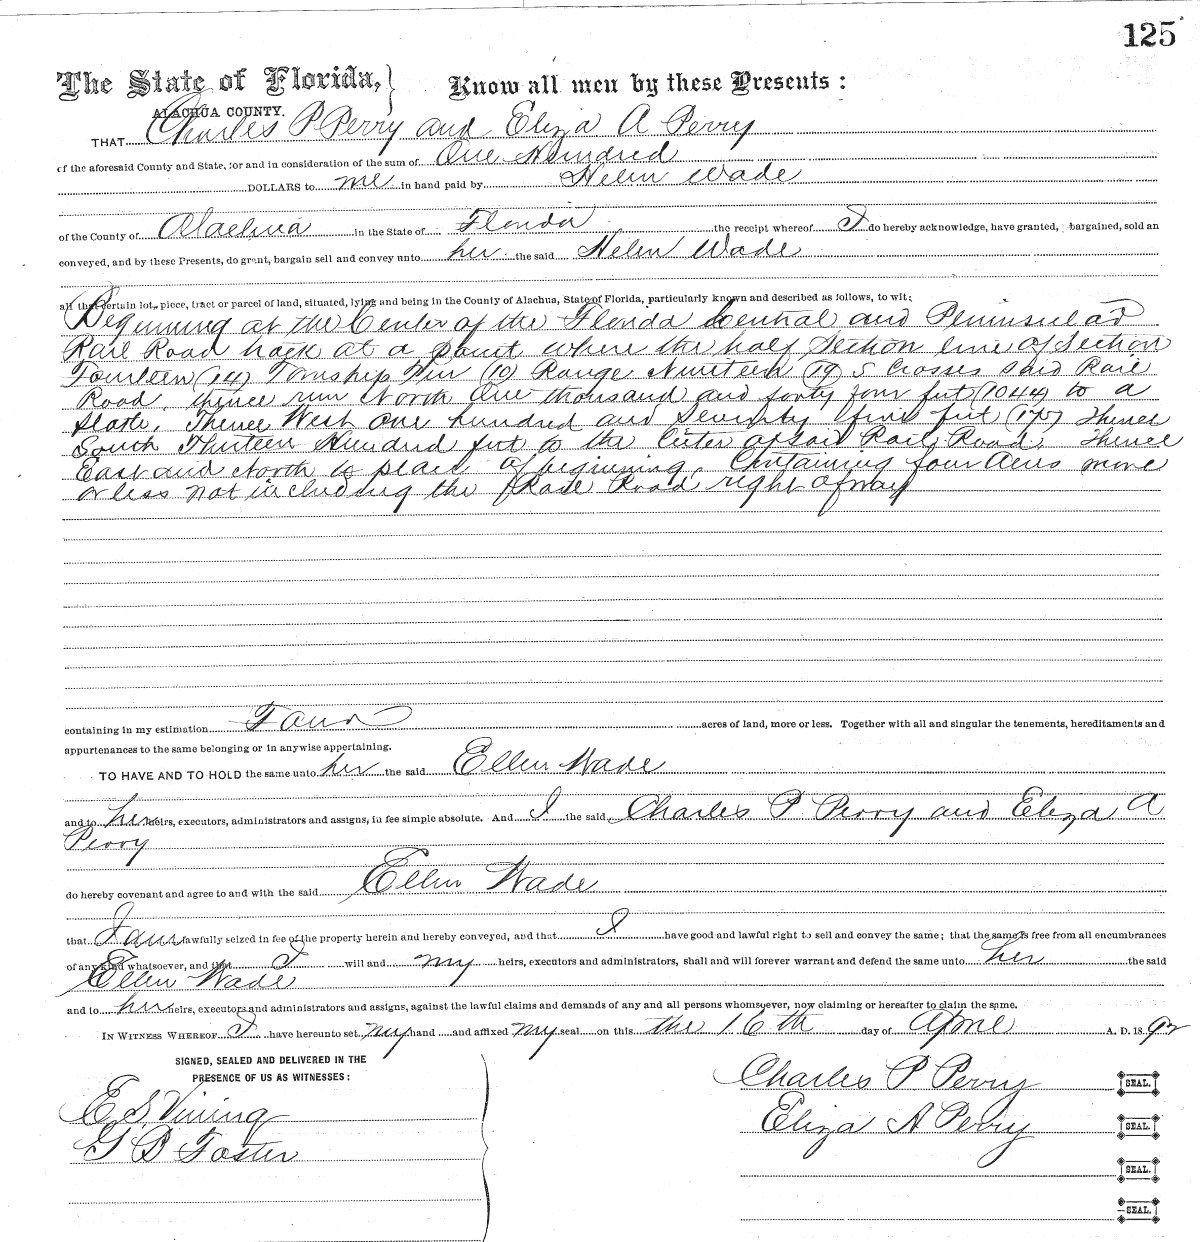 125
The State of Florida, } Know all men by these Presents :
ALACHUA COUNTY.
THAT Charles P Perry and Eliza A Perry
of the aforesaid County and State, for and in consideration of the sum of One Hundred
DOLLARS to me in hand paid by Helen Wade
of the County of Alachua in the State of Florida the receipt whereof I do hereby acknowledge, have granted, bargained, sold an
conveyed, and by these Presents, do grant, bargain sell and convey unto her the said Helen Wade
all that certain lot, piece, tract or parcel of land, situated, lying and being in the County of Alachua, State of Florida, particularly known and described as follows, to wit;
Beginning at the Center of the Florida Central and Peninsular
Rail Road track at a point where the half Section line of Section
Fourteen (14) Township Ten (10) Range Nineteen (19) S Crosses said Rail
Road, thence run North One thousand and forty four feet (1044) to a
stake, Thence West one hundred and Seventy five feet (175) thence
South Thirteen Hundred feet to the Center of said Rail Road thence
East and North to place of beginning, Containing four Acres more
or less not including the Rail Road right of way
containing in my estimation Four acres of land, more or less. Together with all and singular the tenements, hereditaments and
appurtenances to the same belonging or in anywise appertaining.
TO HAVE AND TO HOLD the same unto her the said Ellen Wade
and to her heirs, executors, administrators and assigns, in fee simple absolute. And I the said Charles P Perry and Eliza A
Perry
do hereby covenant and agree to and with the said Ellen Wade
that I am lawfully seized in fee of the property herein and hereby conveyed, and that I have good and lawful right to sell and convey the same; that the same is free from all encumbrances
of any kind whatsoever, and that I will and my heirs, executors and administrators, shall and will forever warrant and defend the same unto her the said
Ellen Wade
and to her heirs, executors and administrators and assigns, against the lawful claims and demands of any and all persons whomsoever, now claiming or hereafter to claim the same.
IN WITNESS WHEREOF I have hereunto set my hand and affixed my seal on this the 16th day of April A. D. 18 92
SIGNED, SEALED AND DELIVERED IN THE
PRESENCE OF US AS WITNESSES :
E S Vining
G B Foster
Charles P Perry SEAL.
Eliza A Perry SEAL.
SEAL.
SEAL.